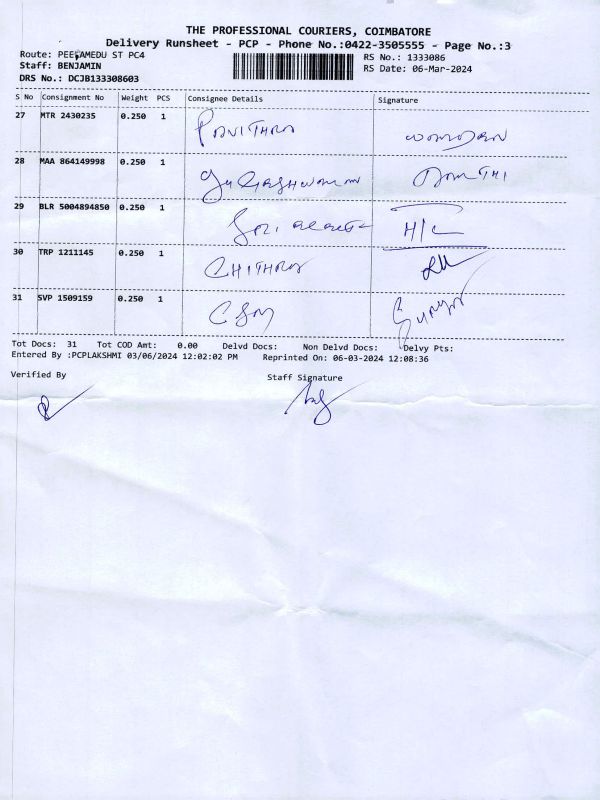 THE PROFESSIONAL COURIERS, COIMBATORE
Delivery Runsheet - PCP - Phone No.:0422-3505555 - Page No.:3
Route: PEELAMEDU ST PC4 RS No.: 1333086
Staff: BENJAMIN RS Date: 06-Mar-2024
DRS No.: DCJB133308603
S No Consignment No Weight PCS Consignee Details Signature
27 MTR 2430235 0.250 1 PAVITHRA
28 MAA 864149998 0.250 1
29 BLR 5004894850 0.250 1 H/L
30 TRP 1211145 0.250 1 CHITHRA
31 SVP 1509159 0.250 1
Tot Docs: 31 Tot COD Amt: 0.00 Delvd Docs: Non Delvd Docs: Delvy Pts:
Entered By :PCPLAKSHMI 03/06/2024 12:02:02 PM Reprinted On: 06-03-2024 12:08:36
Verified By Staff Signature